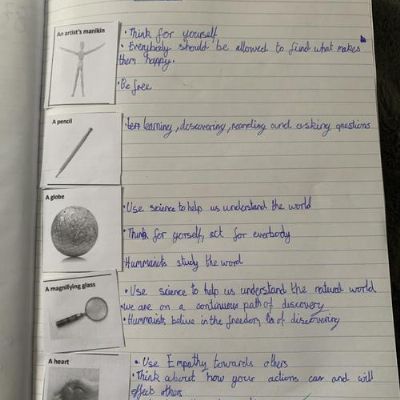 An artist's manikin
• Think for yourself
• Everybody should be allowed to find what makes
them happy.
• Be free
A pencil
learning, discovering, recording and asking questions
A globe
• Use science to help us understand the world
• Think for yorself, act for everbody
Hummanists study the word
A magnifying glass
• Use science to help us understand the natural world
we are on a continuous path of discovery
• Humanists belive in the freedom of discovering
A heart
• Use Empathy towards others
• Think about how your actions can and will
effect others